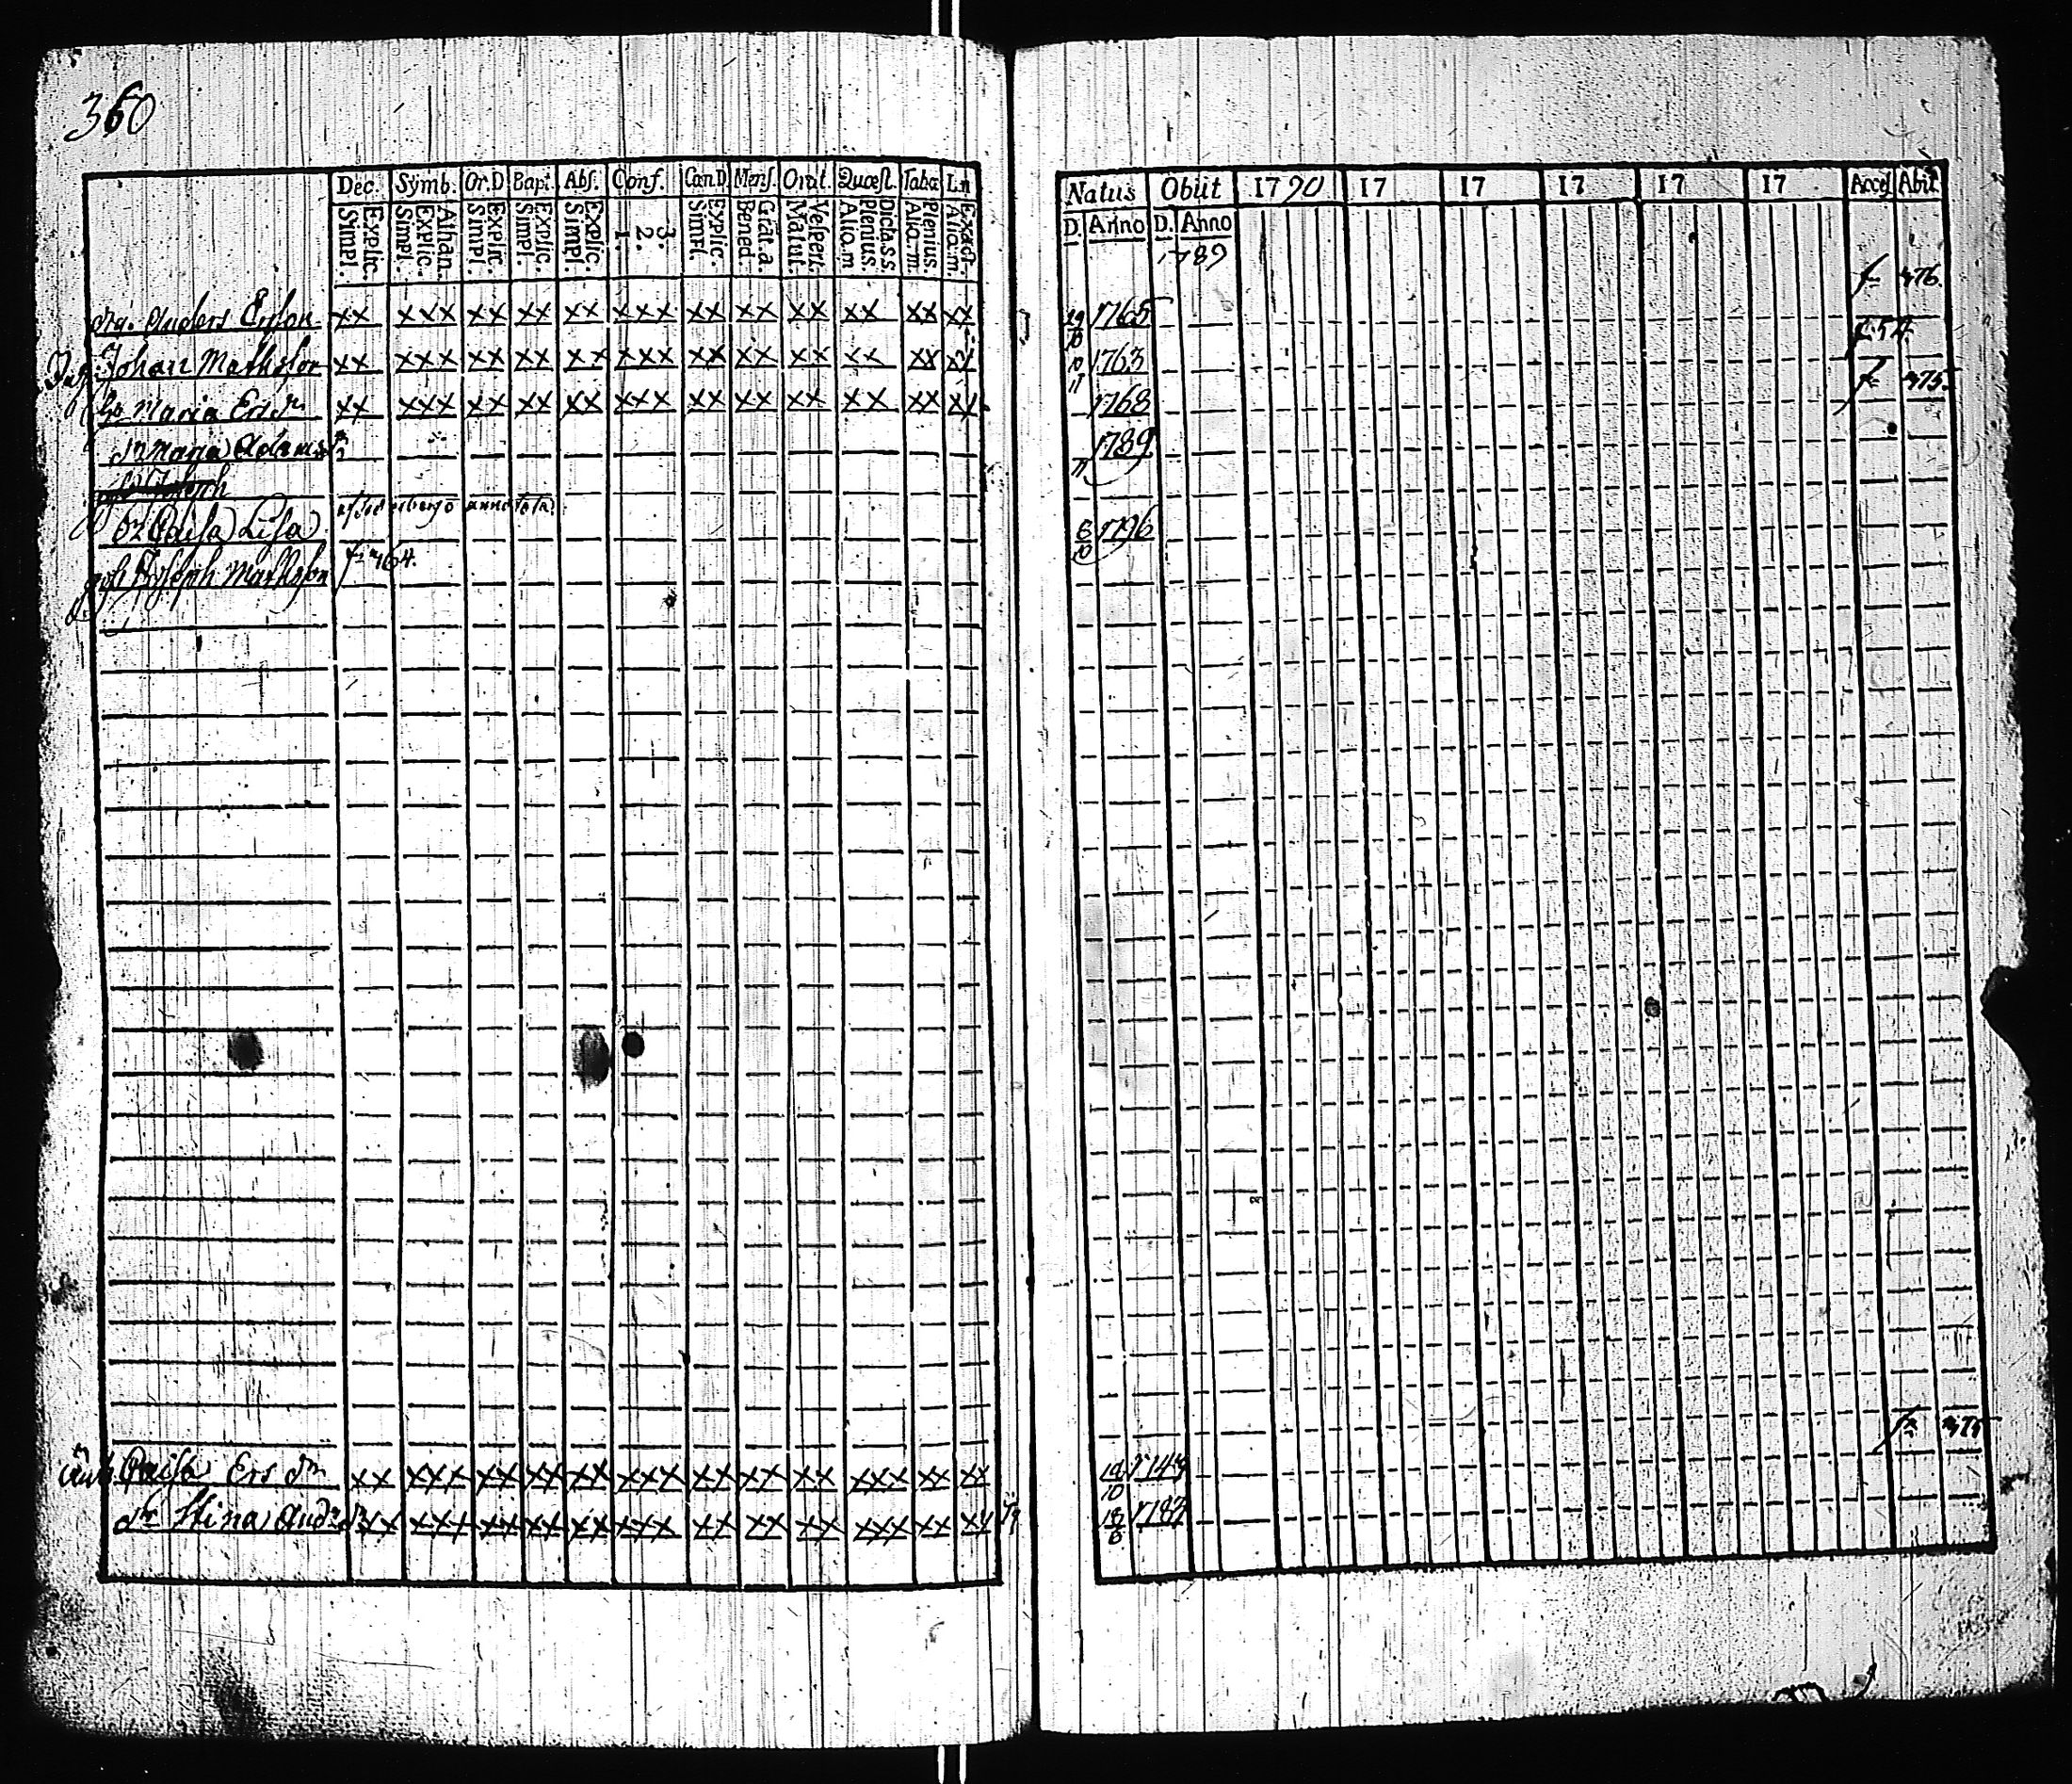 360
Dec. Symb. Or.D Bapt. Abs. Conf. Cœn.D Mens. Orat. Quæst. Tabæ Ln
Explic. Simpl. Athan. Explic. Simpl. Explic. Simpl. Explic. Simpl. Explic. Simpl. 3. 2. 1. Explic. Simpl. Grat.a. Bened. Vespert. Matut. Dicta.s.s. Plenius. Alio.m Plenius. Alia.m. Exact. Alia.m.
Anders Erson xx xxx xx xx xx xxx xx xx xx xx xx xx
Johan Mathsson xx xxx xx xx xx xxx xx xx xx xx xx xx
Maria Ersdr xx xxx xx xx xx xxx xx xx xx xx xx xx
dr Maria Adamsdr
dr Caisa Lisa annotata
Joseph Mathsson 464.
Caisa Ersdr xx xxx xx xx xx xxx xx xx xx xxx xx xx
dr Stina Andrsdr xx xxx xx xx xx xxx xx xx xx xxx xx xx
Natus Obiit 1790 17 17 17 17 17 Acces Abit.
D. Anno D. Anno
1789
376.
19/10 1765
f. 54.
10/11 1763
375.
1768
11 1789
6/10 1796
375
19/10 1749
18/6 1787